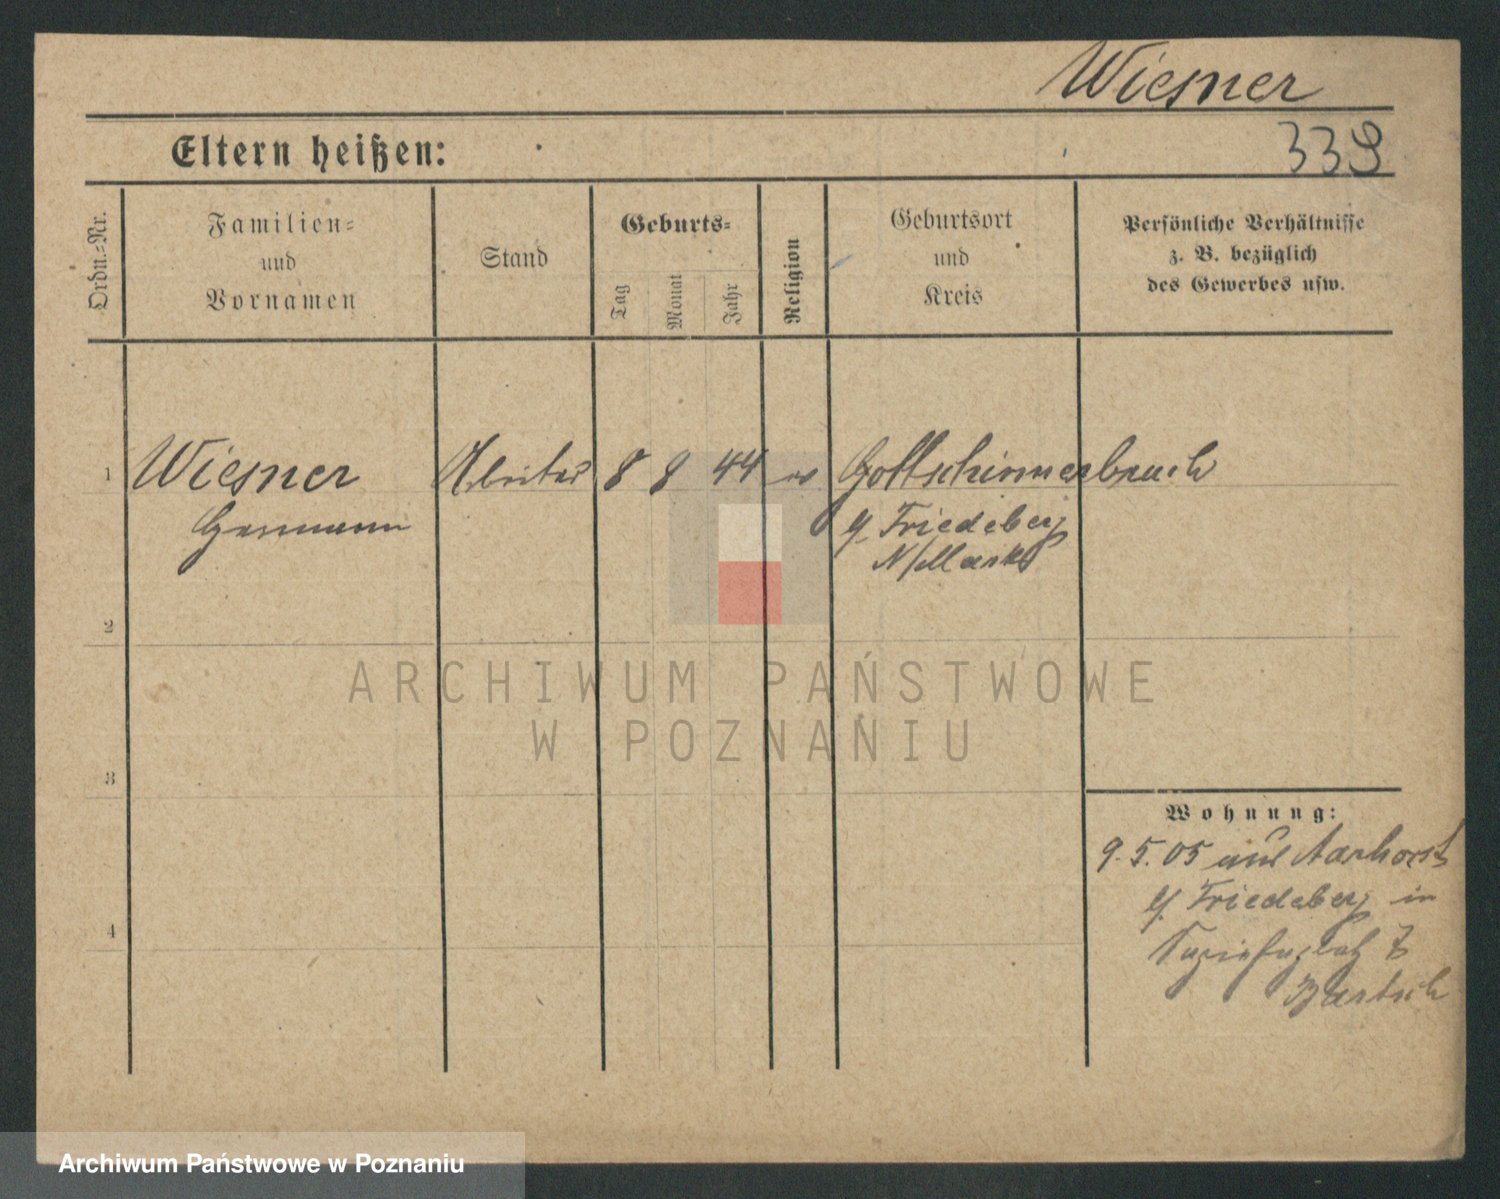 Wiesner
339
Eltern heißen:
Ordn.-Nr.
Familien-
und
Vornamen
Stand
Geburts-
Tag
Monat
Jahr
Religion
Geburtsort
und
Kreis
Persönliche Verhältnisse
z. B. bezüglich
des Gewerbes usw.
1 Wiesner Arbeiter 8 8 44 ev Gottschimmerbruch
Hermann
Kr. Friedeberg
N/Mark
2
ARCHIWUM PAŃSTWOWE
W POZNANIU
3
Wohnung:
9. 5. 05 aus
Kr. Friedeberg in
4
7
Bartsch
Archiwum Państwowe w Poznaniu